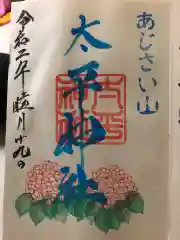 あじさい山
太平神社
令和二年睦月十九日